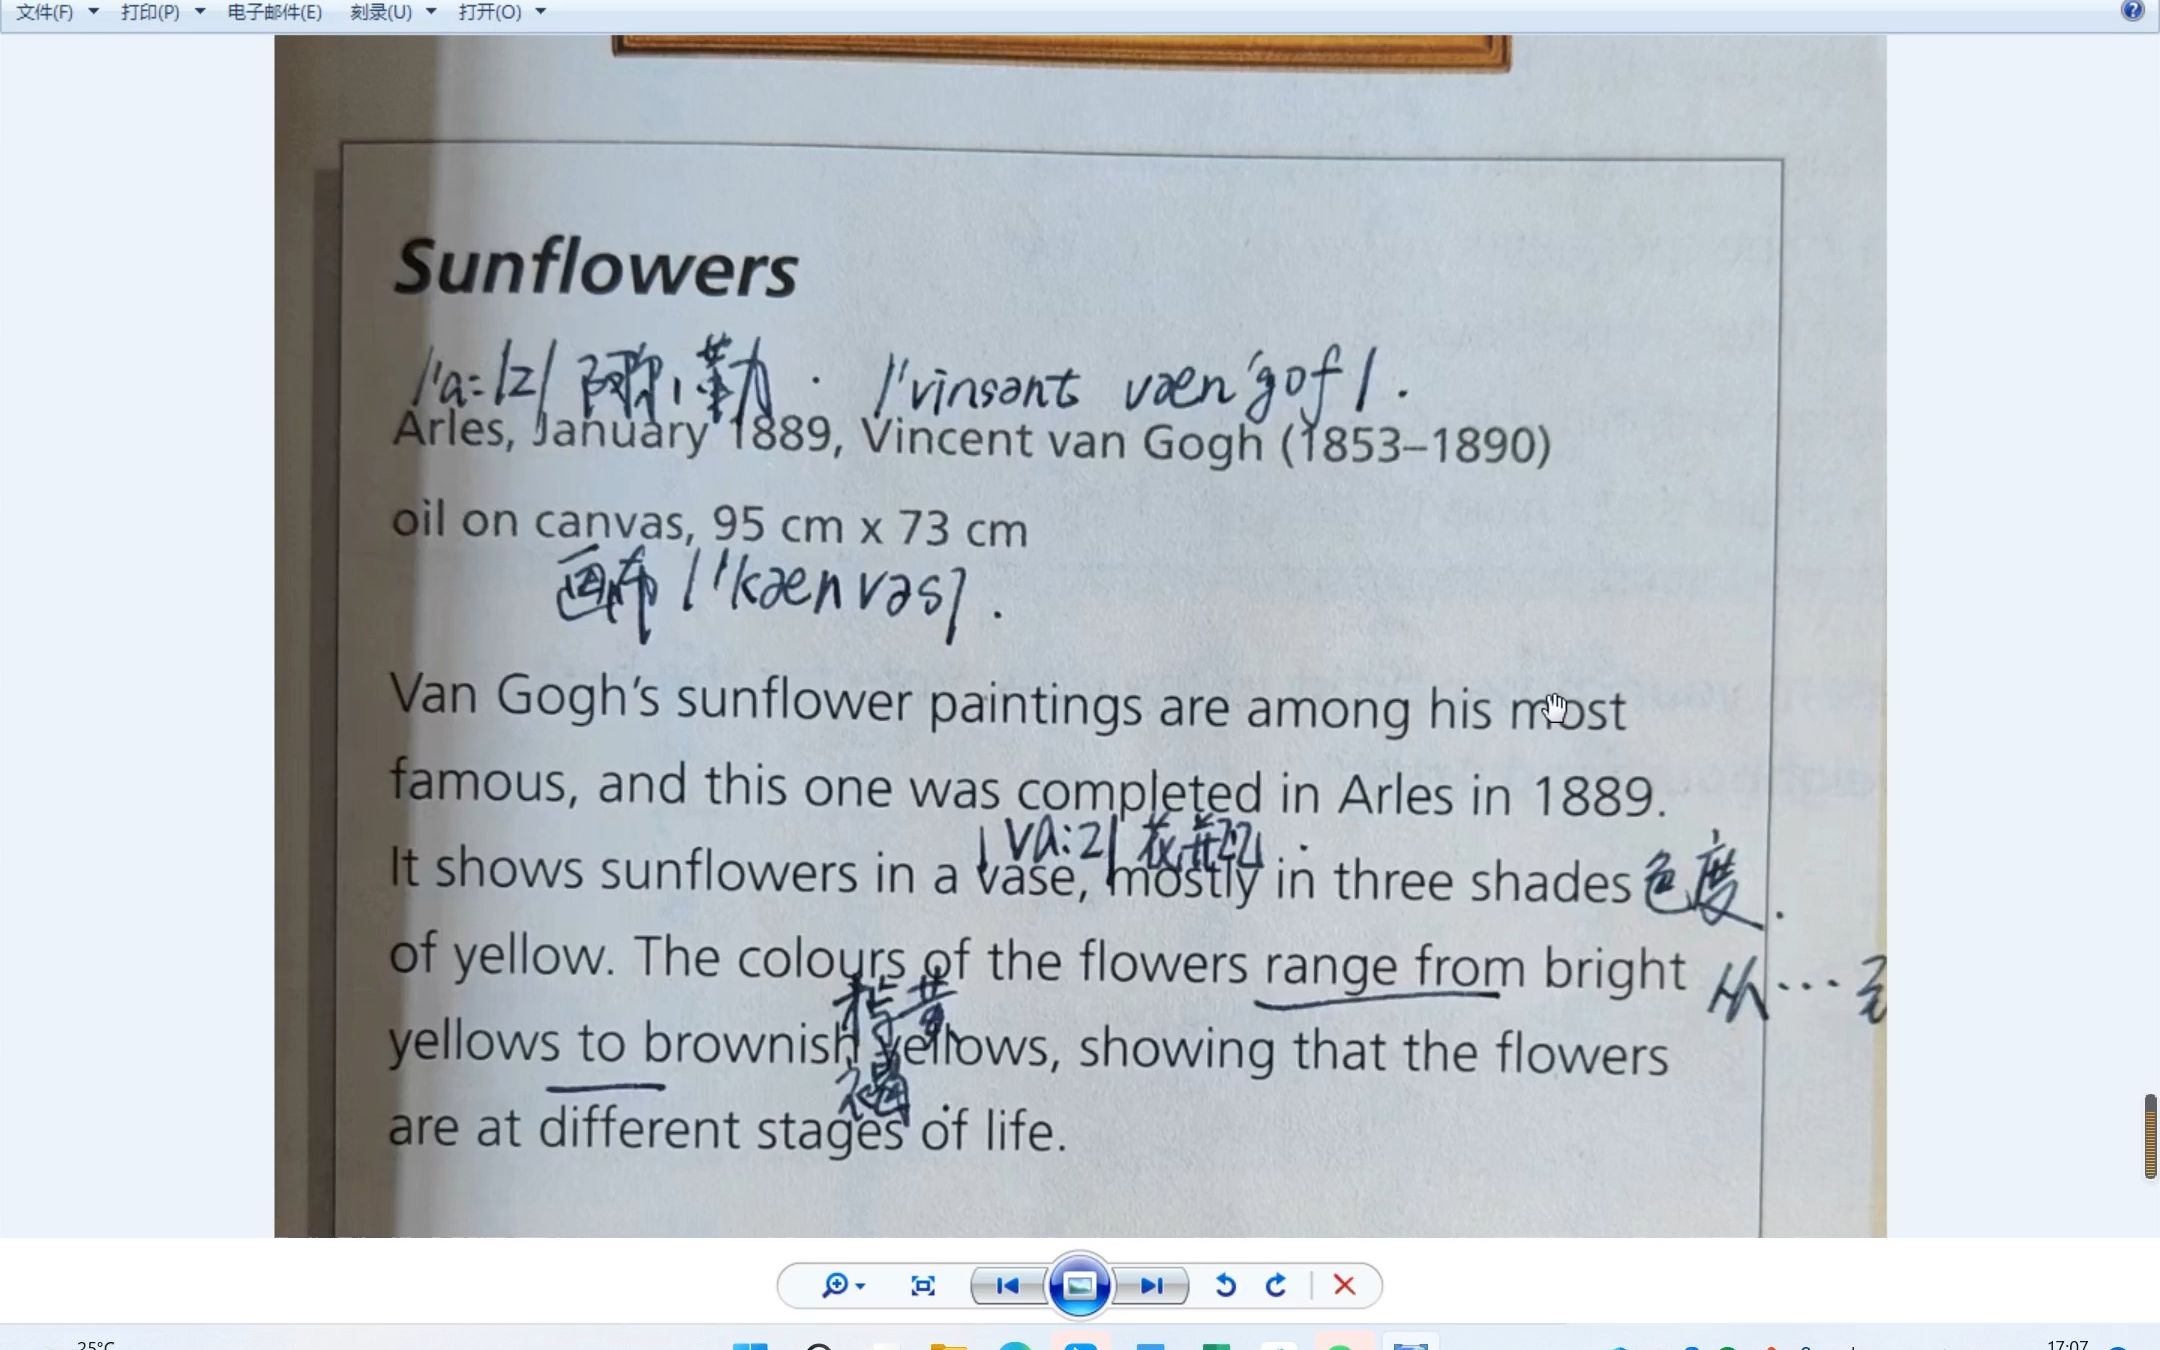 文件(F) 打印(P) 电子邮件(E) 刻录(U) 打开(O)
Sunflowers
/'a:lz/ 阿尔勒. /'vinsənt væn'gɒf/.
Arles, January 1889, Vincent van Gogh (1853–1890)
oil on canvas, 95 cm x 73 cm
画布 /'kænvəs/.
Van Gogh's sunflower paintings are among his most
famous, and this one was completed in Arles in 1889.
/va:z/ 花瓶.
It shows sunflowers in a vase, mostly in three shades 色度.
of yellow. The colours of the flowers range from bright 从…
yellows to brownish yellows, showing that the flowers
are at different stages of life.
25°C
17:07